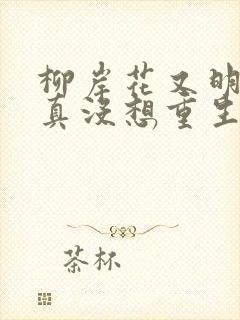 柳岸花又明
真没想重生
茶杯